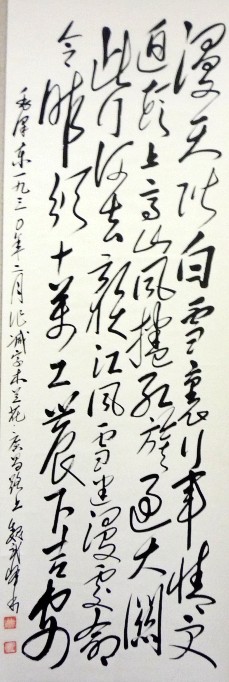 漫天皆白雪裏行軍情更
迫頭上高山風捲紅旗過大關
此行何去贛江風雪迷漫處命
令昨頒十萬工農下吉安
毛澤東一九三〇年二月作减字木兰花廣昌路上